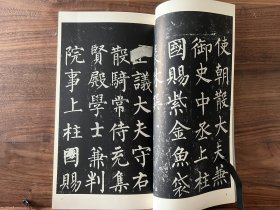 使朝散大夫兼
御史中丞上柱
國賜紫金魚袋
議大夫守右
散騎常侍充集
賢殿學士兼判
院事上柱國賜